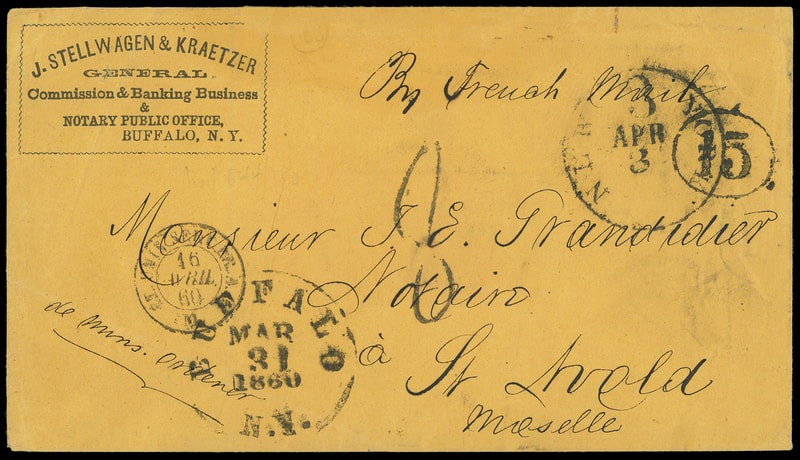 J. STELLWAGEN & KRAETZER
GENERAL
Commission & Banking Business
&
NOTARY PUBLIC OFFICE,
BUFFALO, N. Y.
By French Mail
NEW YORK
3
APR
3
15
Monsieur J. E. Grandidier
Notaire
à St Avold
Moselle
16
AVRIL
60
BUFFALO
MAR
31
1860
N.Y.